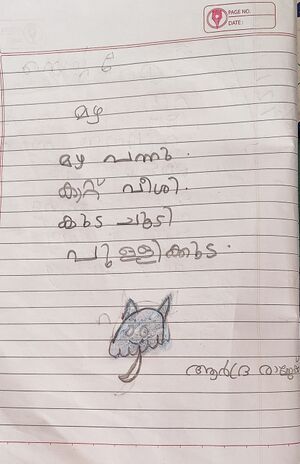 PAGE NO.
DATE:
മഴ
മഴ വന്നു.
കാറ്റ് വീശി.
കുട ചൂടി
പുള്ളിക്കുട.
ആർദ്ര